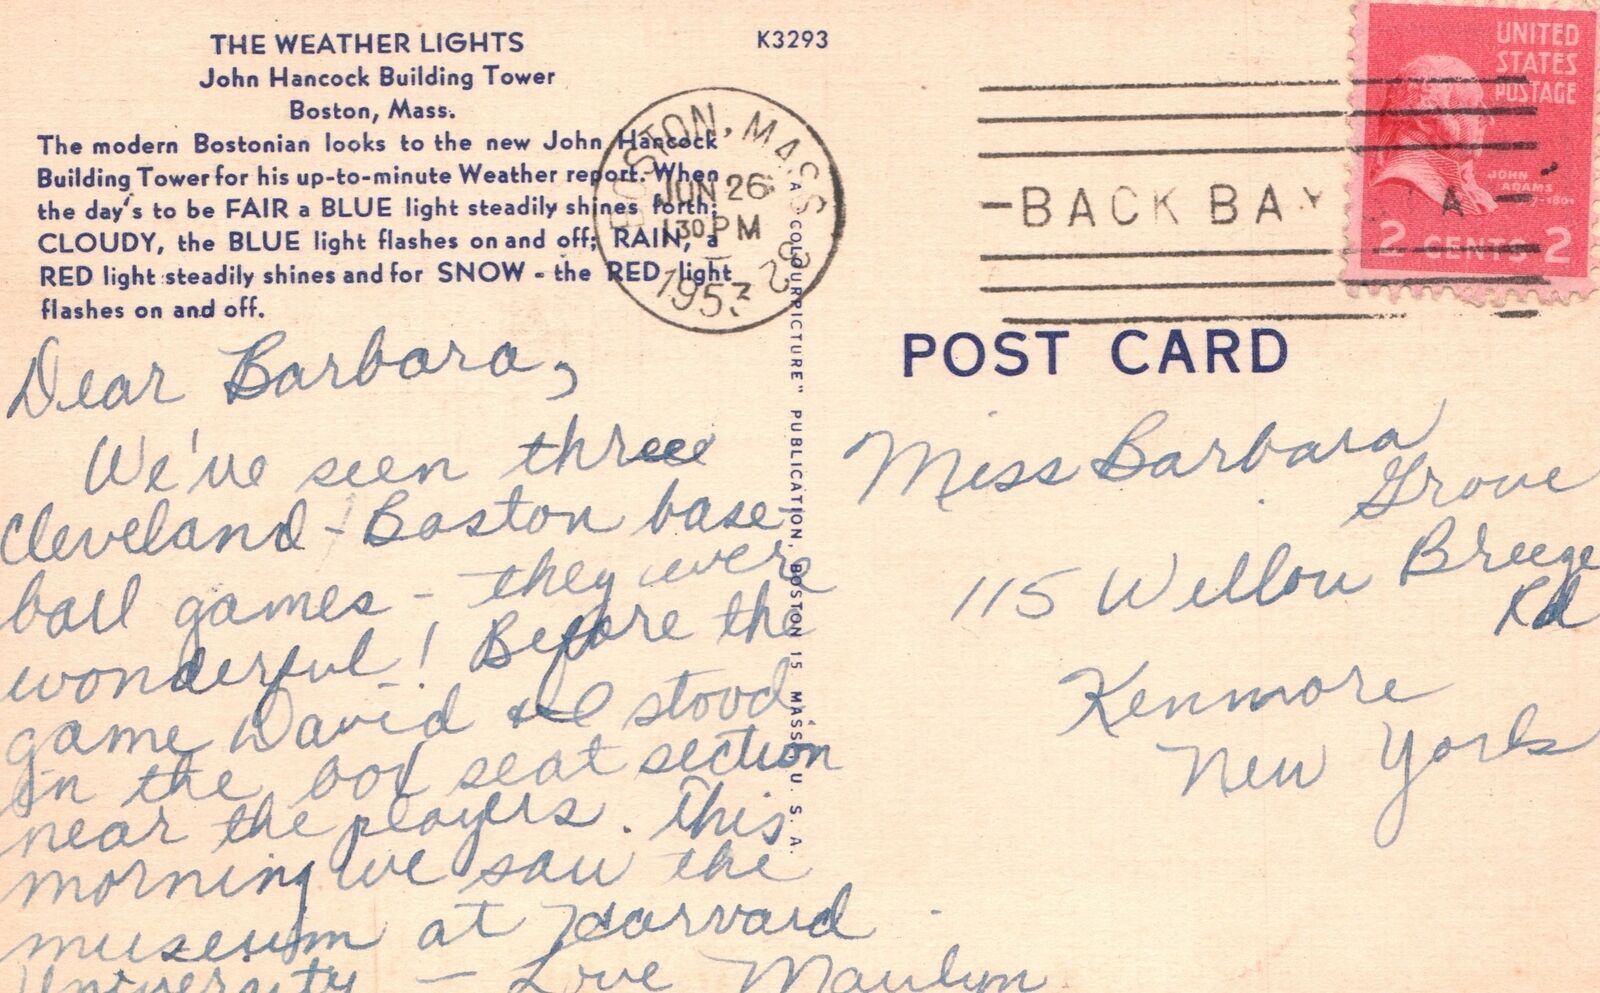 THE WEATHER LIGHTS
John Hancock Building Tower
Boston, Mass.
The modern Bostonian looks to the new John Hancock
Building Tower for his up-to-minute Weather report. When
the day's to be FAIR a BLUE light steadily shines forth;
CLOUDY, the BLUE light flashes on and off; RAIN, a
RED light steadily shines and for SNOW - the RED light
flashes on and off.
K3293
BOSTON, MASS.
JUN 26
130 PM
1953
BACK BAY
UNITED
STATES
POSTAGE
JOHN
ADAMS
2 CENTS 2
A "COLOURPICTURE" PUBLICATION, BOSTON 15, MASS., U. S. A.
POST CARD
Dear Barbara,
We've seen three
Cleveland - Boston base-
ball games - they were
wonderful! Before the
game David & I stood
in the box seat section
near the players. This
morning we saw the
museum at Harvard
University - Love Marilyn
Miss Barbara
Grove
115 Willow Breeze
Rd
Kenmore
New York